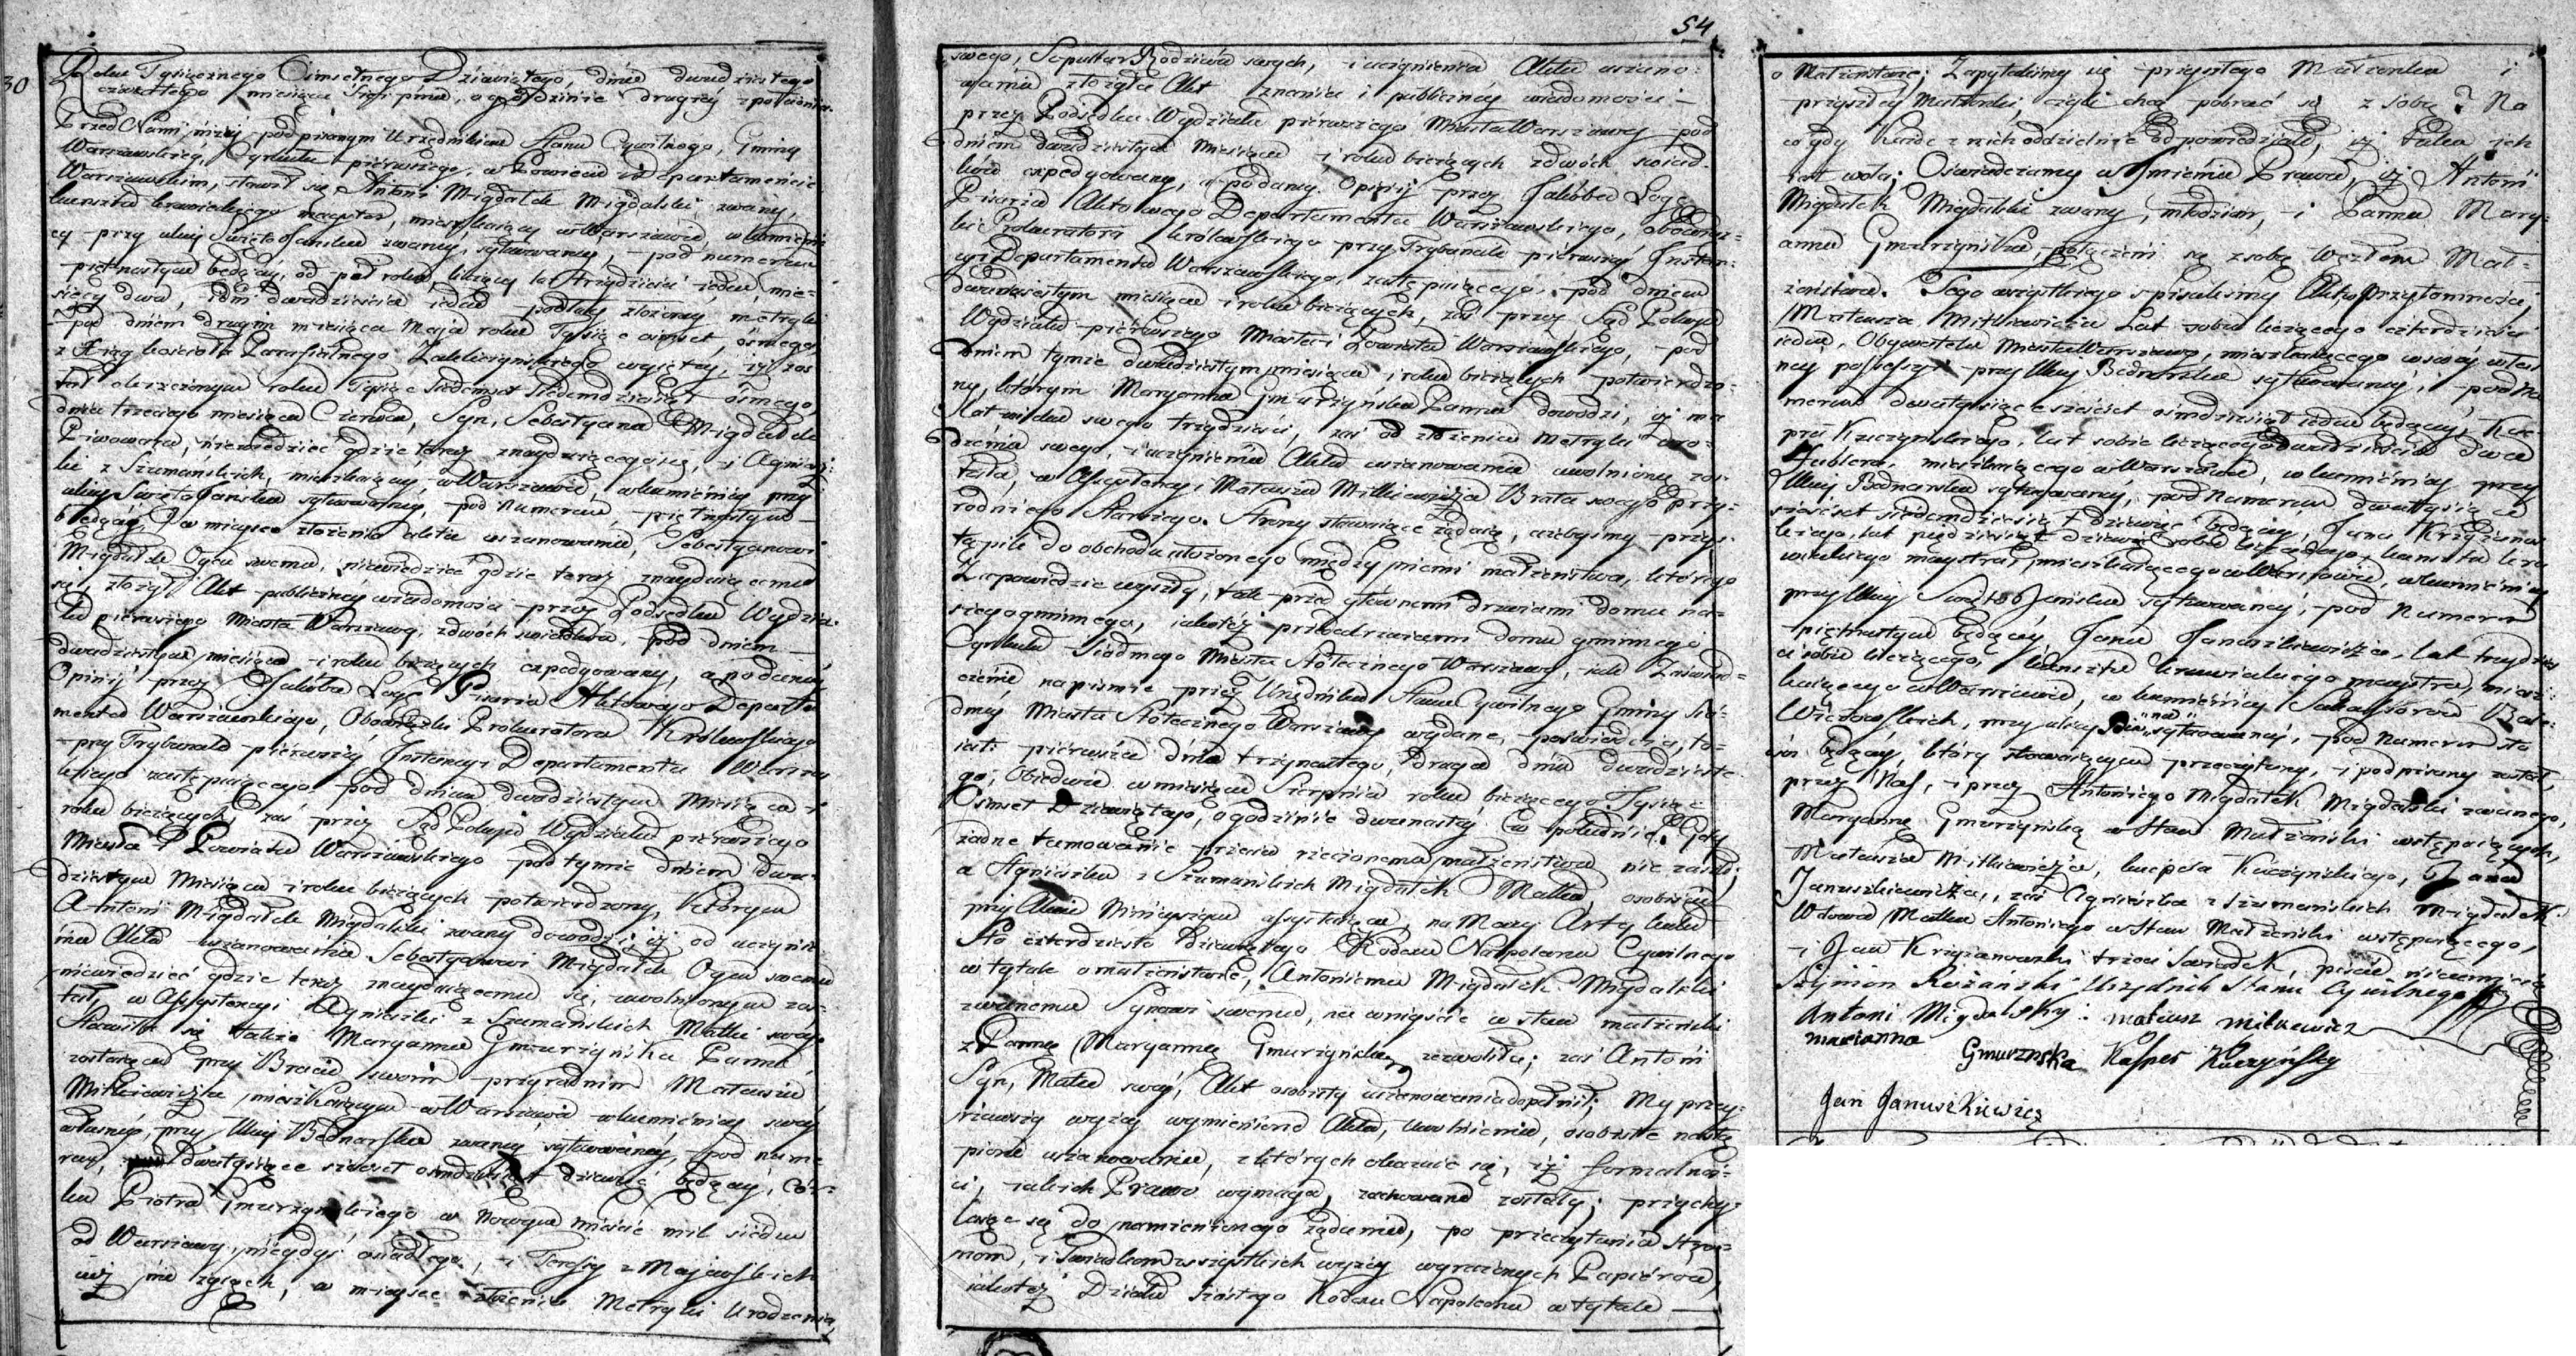 30
Roku Tysiącznego Ośmsetnego Dziewiątego, dnia dwudziestego
czwartego miesiąca Sierpnia, o godzinie drugiey z południa.
Przed Nami niżey podpisanym Urzędnikiem Stanu Cywilnego, Gminy
Warszawskiey, Cyrkułu pierwszego, w Powiecie i Departamencie
Warszawskim, stawił się Antoni Migdałek Migdalski zwany,
kunsztu krawieckiego mayster, mieszkaiący w Warszawie, w kamienicy
przy ulicy Święto Jańska zwaney, sytuowaney, pod numerem
piętnastym będącey, od pół roku, liczący lat trzydzieści ieden, mie-
sięcy dwa, i dni dwadzieścia ieden podług złożoney metryki
pod dniem drugim miesiąca Maja roku Tysiąc ośmset, ósmego,
z Xiąg kościoła Parafialnego wyiętey, iż zos-
tał okrzczonym roku Tysiąc Siedemset Siedemdziesiąt ósmego,
dnia trzeciego miesiąca Czerwca, Syn, Sebastyana Migdałka
Piwowara, niewiedzieć gdzie teraz znayduiącego się, i Agniesz-
ki z Szumańskich, mieszkaiącey w Warszawie, w kamienicy przy
ulicy Święto Jańska sytuowaney, pod Numerem piętnastym
będącey, w mieysce złożenia aktu uszanowania, Sebastyanowi
Migdałek Oycu swemu, niewiedzieć gdzie teraz znayduiącemu
się, złożył Akt publiczney wiadomości przez Podsędka Wydzia-
łu pierwszego Miasta Warszawy, z dwóch świadków, pod dniem
dwudziestym miesiąca i roku bieżących expedyowany, a po daney
Opinij przez Jakóba Pisarza Aktowego Departa-
mentu Warszawskiego, Obowiązki Prokuratora Królewskiego
przy Trybunale pierwszey Instancyi Departamentu Warszaw-
skiego zastępuiącego pod dniem dwudziestym Miesiąca i
roku bieżących, zaś przez Sąd Pokoju Wydziału pierwszego
Miasta i Powiatu Warszawskiego pod tymże dniem dwu-
dziestym Miesiąca i roku bieżących potwierdzony, którym
Antoni Migdałek Migdalski zwany dowodzi, iż od uczynie-
nia Aktu uszanowania Sebastyanowi Migdałek Oycu swemu
niewiedzieć gdzie teraz znayduiącemu się, uwolnionym zos-
tał, w Assystencyi Agnieszki z Szumańskich Matki swoiey
Stawiła się także Maryanna Gmurzyńska Panna,
zostaiąca przy Bracie swoim przyrodnim Mateuszu
Mitkiewiczu, mieszkaiącym w Warszawie w kamienicy swey
własney, przy Ulicy Bednarska zwaney sytuowaney, pod nume-
rem dwa tysiące sześćset ośmdziesiąt dziewięć będącey, Cór-
ka Piotra Gmurzyńskiego w Nowym mieście mil siedm
od Warszawy, niegdyś osiadłego, i Teressy z Majewskich
iuż nie żyiących, w mieysce złożenia Metryki Urodzenia
54
swego, Sepultur Rodziców swych, i uczynienia Aktu uszano-
wania złożyła Akt znania i publiczney wiadomości
przez Podsędka Wydziału pierwszego Miasta Warszawy pod
dniem dwudziestym miesiąca i roku bieżących z dwóch świad-
ków expedyowany, a po daney Opinij przez Jakóba
Pisarza Aktowego Departamentu Warszawskiego, obowiąz-
ki Prokuratora królewskiego przy Trybunale pierwszey Instan-
cyi Departamentu Warszawskiego, zastępuiącego, pod dniem
dwudziestym miesiąca i roku bieżących, zaś przez Sąd Pokoju
Wydziału pierwszego Miasta i Powiatu Warszawskiego, pod
dniem tymże dwudziestym miesiąca i roku bieżących potwierdzo-
ny, którym Maryanna Gmurzyńska Panna dowodzi, iż ma
lat wieku swego trzydzieści, zaś od złożenia Metryki uro-
dzenia swego, i uczynienia Aktu uszanowania uwolnioną zos-
tała, w Assystencyi Mateusza Mitkiewicza Brata swego przy-
rodniego Starszego. Strony stawaiące żądaią, ażebyśmy przys-
tąpili do obchodu ułożonego między niemi małżeństwa, którego
Zapowiedzie wyszły, tak przed głównemi drzwiami domu na-
szego gminnego, iakoteż przed drzwiami domu gminnego
Cyrkułu Siódmego Miasta Stołecznego Warszawy, iak Zaświad-
czenie na piśmie przez Urzędnika Stanu Cywilnego Gminy Sió-
dmey Miasta Stołecznego Warszawy wydane, poświadcza, to-
iest: pierwsza dnia trzynastego, druga dnia dwudzieste-
go, Obiedwie w miesiącu Sierpniu roku bieżącego Tysiąc
Ośmset Dziewiątego, o godzinie dwunastey w południe. Gdy
żadne tamowanie przeciw rzeczonemu małżeństwu nie zaszło;
a Agnieszka z Szumańskich Migdałek Matka, osobiście
przy Akcie Ninieyszym assystuiąca, na Mocy Artykułu
Sto czterdziesto dziewiątego Kodexu Napoleona Cywilnego
w tytule o małżeństwie, Antoniemu Migdałek Migdalski
zwanemu Synowi swemu, na weyście w stan małżeński
z Panną Maryanną Gmurzyńską zezwoliła; zaś Antoni
Syn, Matce swey, Akt osobisty uszanowania dopełnił; My przey-
rzawszy wyżey wymienione Akta, uwolnienie, osobiste nastą-
pione uszanowanie, z których okazuie się, iż formalnoś-
ci, iakich Prawo wymaga, zachowane zostały; przychy-
laiąc się do namienionego żądania, po przeczytaniu Stro-
nom, i Świadkom wszystkich wyżey wyrażonych Papierów,
iakoteż Działu szóstego Kodexu Napoleona w tytule
o Małżeństwie; Zapytaliśmy się przyszłego Małżonka i
przyszłey Małżonki, czyli chcą pobrać się z sobą? Na
co gdy każde z nich oddzielnie odpowiedziało, iż taka ich
iest wola; Oświadczamy w Imieniu Prawa, iż Antoni
Migdałek Migdalski zwany, młodzian, i Panna Mary-
anna Gmurzyńska, połączeni są z sobą węzłem Mał-
żeństwa. Tego wszystkiego spisaliśmy Akt w przytomności,
Mateusza Mitkiewicza Lat sobie liczącego czterdzieści
ieden, Obywatela Miasta Warszawy, mieszkaiącego w swey włas-
ney possessyi przy Ulicy Bednarska sytuowaney, pod Nu-
merem dwa tysiące sześćset ośmdziesiąt będącey, Kac-
pra Kuczyńskiego, lat sobie liczącego dwadzieścia dwa
Jublera, mieszkaiącego w Warszawie, w kamienicy przy
Ulicy Bednarska sytuowaney, pod Numerem dwa tysiące
sześćset siedemdziesiąt dziewięć będącey, Jana Krzyżanow-
skiego, lat pięćdziesiąt dziewięć sobie liczącego, kunsztu kra-
wieckiego maystra, mieszkaiącego w Warszawie, w kamienicy
przy Ulicy Święto Jańska sytuowaney, pod Numerem
piętnastym będącey Jana Januszkiewicza, lat trzydzieś-
ci sobie liczącego, kunsztu krawieckiego maystra, miesz-
kaiącego w Warszawie, w kamienicy Sukcessorów
przy ulicy sytuowaney, pod Numerem sto
będącey, który stawaiącym przeczytany, i podpisany został,
przez Nas, i przez Antoniego Migdałek Migdalski zwanego,
Maryannę Gmurzyńską w Stan Małżeński wstępuiących,
Mateusza Mitkiewicza, kacpra Kuczyńskiego, Jana
Januszkiewicza, zaś Agnieszka z Szumańskich Migdałek
Wdowa Matka Antoniego w Stan Małżeński wstępuiącego,
i Jan Krzyżanowski trzeci świadek, pisać nieumieią
Szymon Różański Urzędnik Stanu Cywilnego
Antoni Migdalsky. mateusz mitkiewicz
marianna
Gmurznska Kasper Kuczyńsky
Jan Januszkiewicz